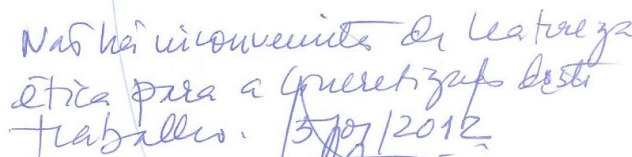 Não há inconvenientes de natureza
ética para a concretização deste
trabalho. 13/07/2012